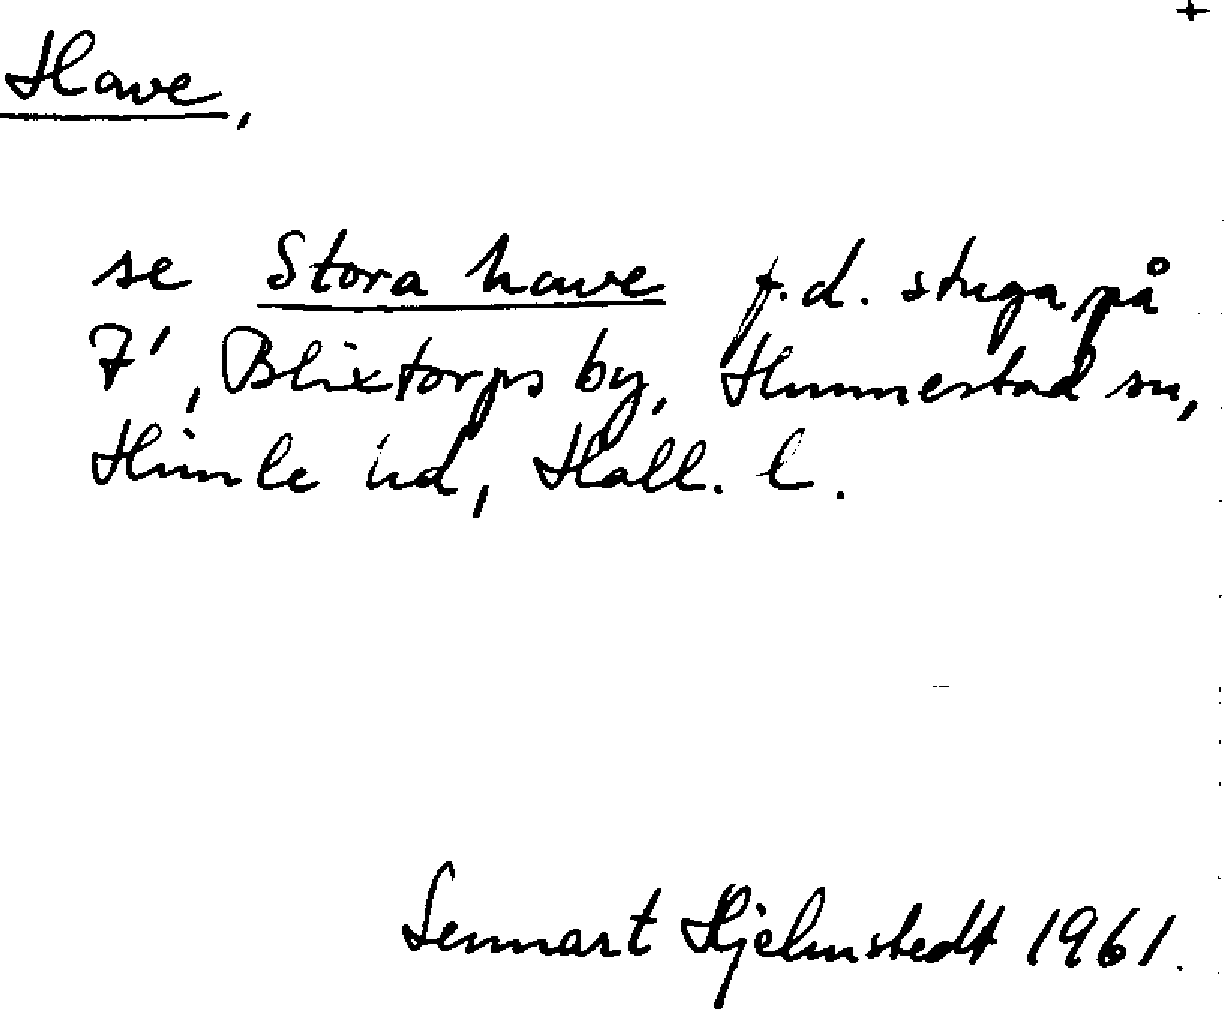 +
Have,
se Stora have f.d. stuga på
7', Blixtorps by, Hunnestad sn,
Himle hd, Hall. l.
Lennart Hjelmstedt 1961.